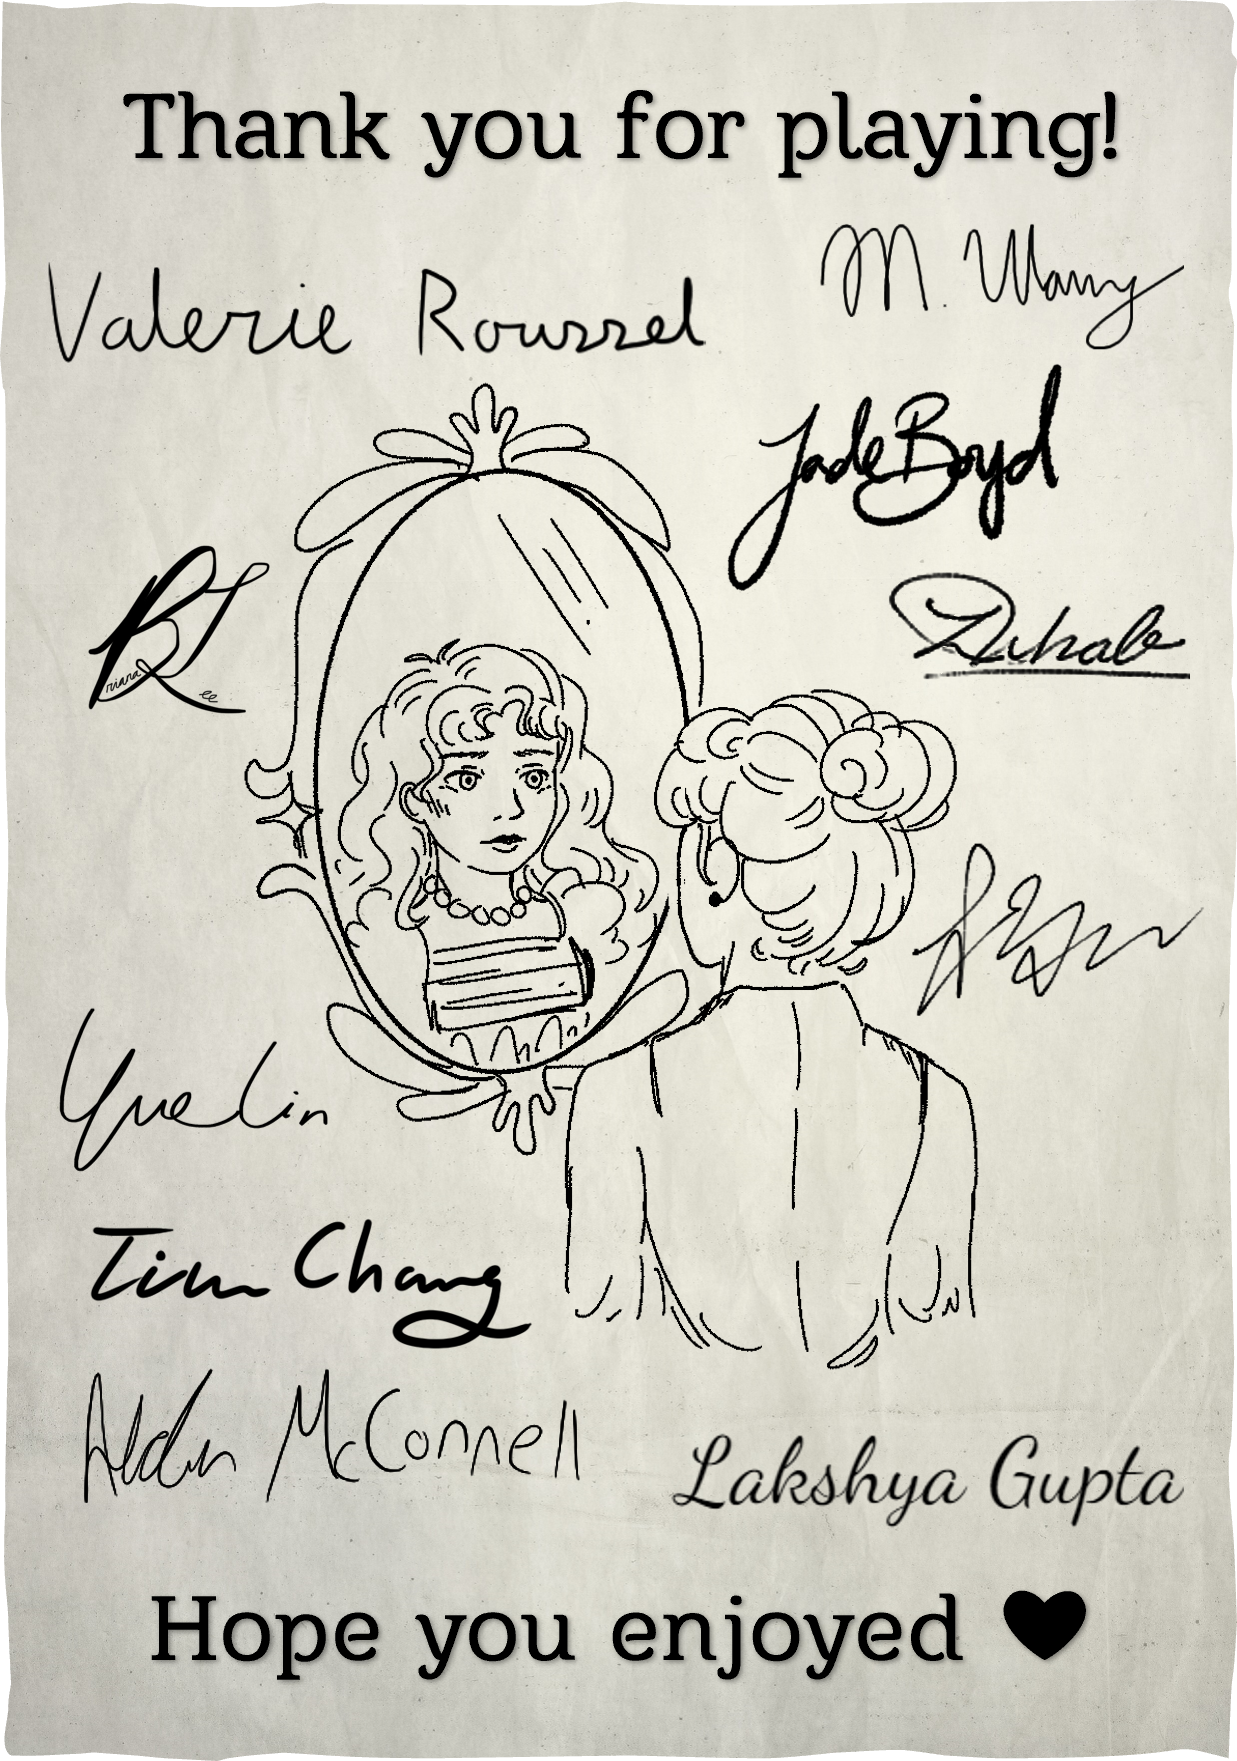 Thank you for playing!
M.
Valerie Roussel
Jade Boyd
Briana Lee
Yuelin
Tim Chang
Aidan McConnell
Lakshya Gupta
Hope you enjoyed ♥